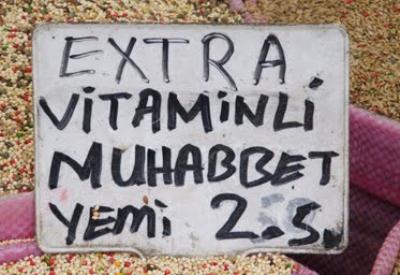 EXTRA
ViTAMiNLi
MUHABBET
YEMi 2.5.